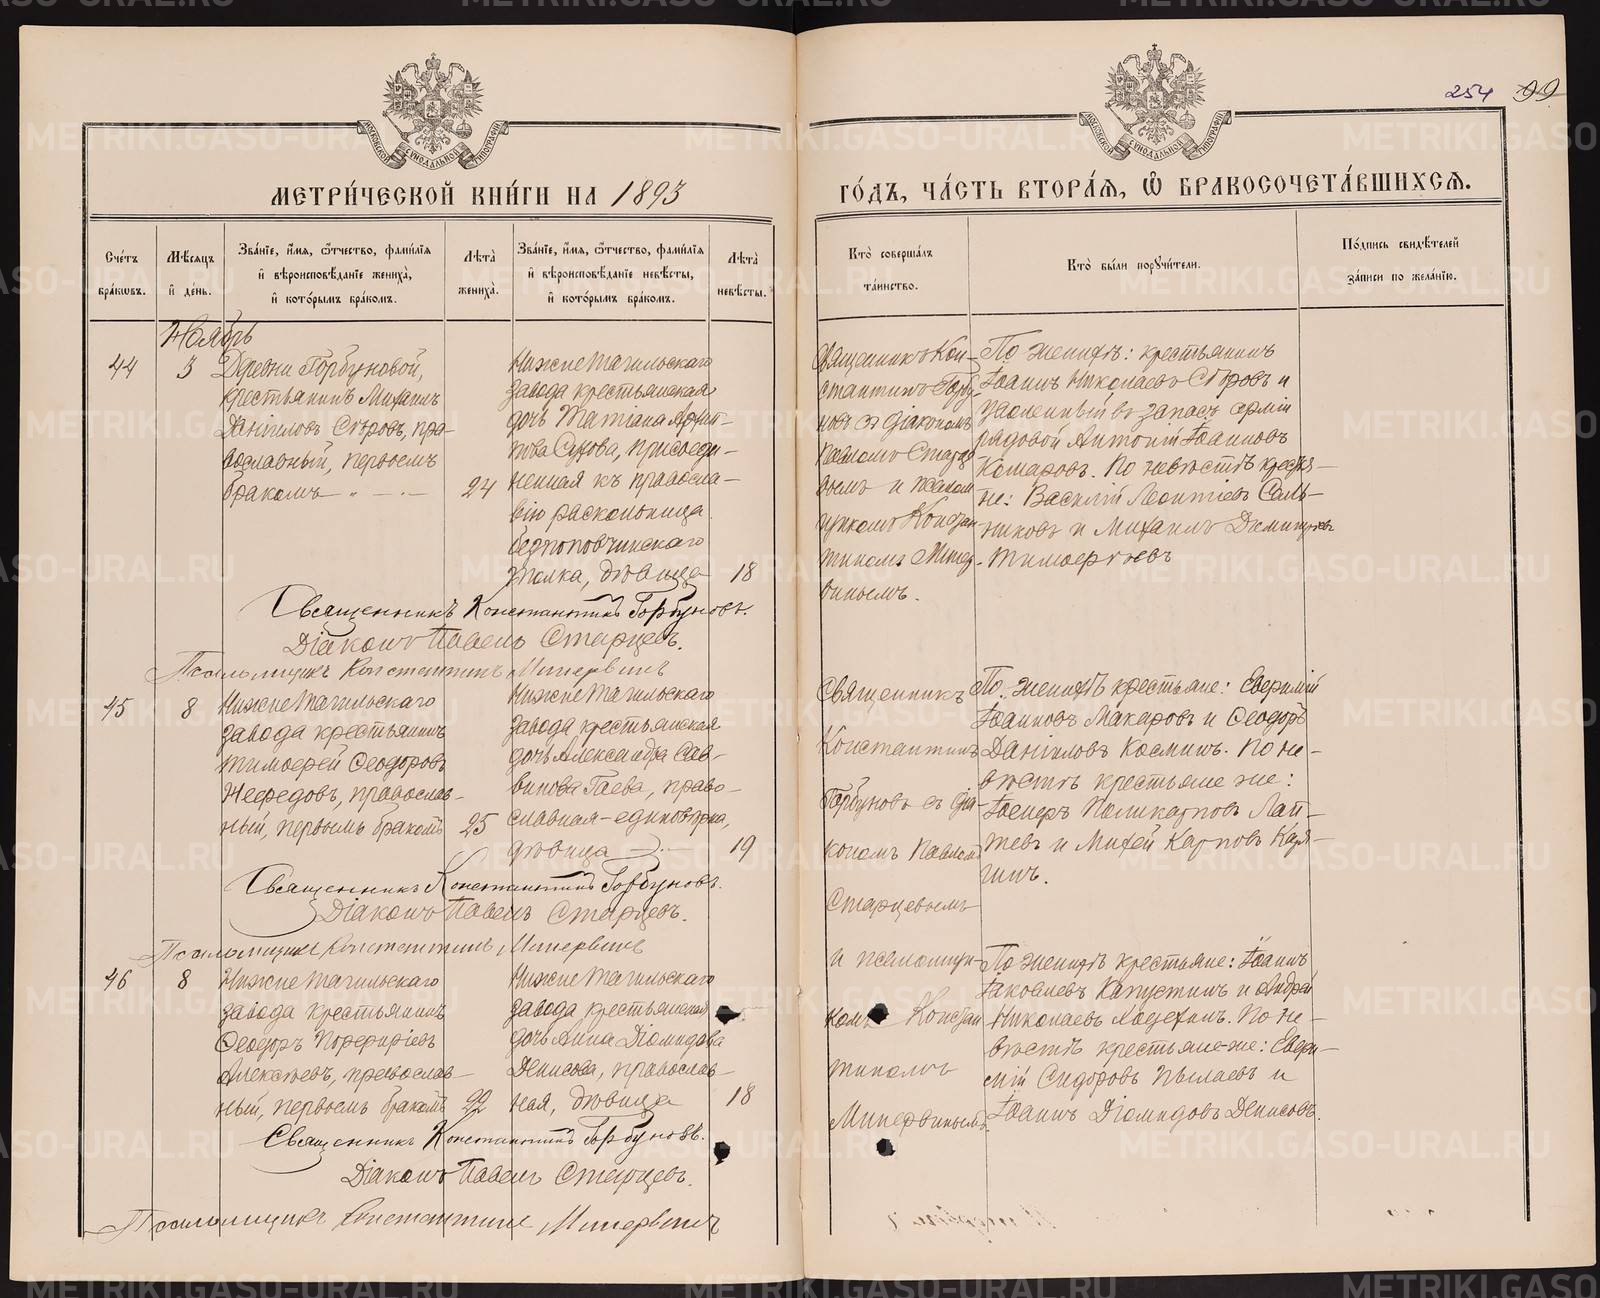 254 99
МОСКОВСКОЙ СѴНОДАЛЬНОЙ ТИПОГРАФІИ
МОСКОВСКОЙ СѴНОДАЛЬНОЙ ТИПОГРАФІИ
МЕТРИ́ЧЕСКОЙ КНИ́ГИ НА 1893
ГО́ДЪ, ЧА́СТЬ ВТОРА́Ѧ, Ѽ БРАКОСОЧЕТА́ВШИХСѦ.
Сче́тъ бра́кѡвъ.
Мѣ́сѧцъ и҆ де́нь.
Зва́нїе, и҆́мѧ, ѻ҆́тчество, фами́лїѧ
и҆ вѣроисповѣ́данїе жениха̀,
и҆ кото́рымъ бра́комъ.
Лѣта̀ жениха̀.
Зва́нїе, и҆́мѧ, ѻ҆́тчество, фами́лїѧ
и҆ вѣроисповѣ́данїе невѣ́сты,
и҆ кото́рымъ бра́комъ.
Лѣта̀ невѣ́сты.
Кто̀ соверша́лъ
та́инство.
Кто̀ бы́ли порꙋчи́тели.
По́дпись свидѣ́телей
за́писи по жела́нїю.
Ноябрь
44
3
Деревни Горбуновой,
крестьянинъ Михаилъ
Даніиловъ Сѣровъ, пра-
вославный, первымъ
бракомъ
24
Нижнетагильскаго
завода крестьянская
дочь Татіана
Сухова, присоеди-
ненная къ правосла-
вію раскольница
безпоповчинскаго
толка, дѣвица
18
Священникъ Кон-
стантинъ Горбу-
новъ съ діакономъ
Павломъ Старце-
вымъ и псалом
щикомъ Констан
тиномъ Минер-
винымъ.
По женихѣ: крестьянинъ
Іоаннъ Николаевъ Сѣровъ и
уволенный въ запасъ арміи
рядовой Антоній Іоанновъ
Комаровъ. По невѣстѣ крестья-
не: Василій Леонтіевъ Саль-
никовъ и Михаилъ
Тимофеевъ
Священникъ Константинъ Горбуновъ.
Діаконъ Павелъ Старцевъ.
Псаломщикъ Константинъ Минервинъ
45
8
Нижнетагильскаго
завода крестьянинъ
Тимофей Ѳеодоровъ
Нефедовъ, православ-
ный, первымъ бракомъ
25
Нижнетагильскаго
завода, крестьянская
дочь Александра Сав-
винова Гаева, право-
славная-единовѣрка,
дѣвица
19
Священникъ
Константинъ
Горбуновъ съ діа-
кономъ Павломъ
Старцевымъ
и псаломщи-
комъ Констан
тиномъ
Минервинымъ.
По женихѣ крестьяне:
Іоанновъ Макаровъ и Ѳеодоръ
Даніиловъ Косминъ. По не-
вѣстѣ крестьяне же:
Поликарповъ Лап-
тевъ и Михей Карповъ Каря-
гинъ.
Священникъ Константинъ Горбуновъ.
Діаконъ Павелъ Старцевъ.
Псаломщикъ Константинъ Минервинъ
46
8
Нижнетагильскаго
завода крестьянинъ
Ѳеодоръ Порфиріевъ
Алексѣевъ, православ-
ный, первымъ бракомъ
22
Нижнетагильскаго
завода крестьянская
дочь Анна Діомидова
Денисова, православ-
ная, дѣвица
18
По женихѣ крестьяне: Іоаннъ
Іаковлевъ Капустинъ и Андрей
Николаевъ. По не-
вѣстѣ крестьяне-же: Евфи-
мій Сидоровъ Пылаевъ и
Іоаннъ Діомидовъ Денисовъ.
Священникъ Константинъ Горбуновъ.
Діаконъ Павелъ Старцевъ.
Псаломщикъ Константинъ Минервинъ
METRIKI.GASO-URAL.RU